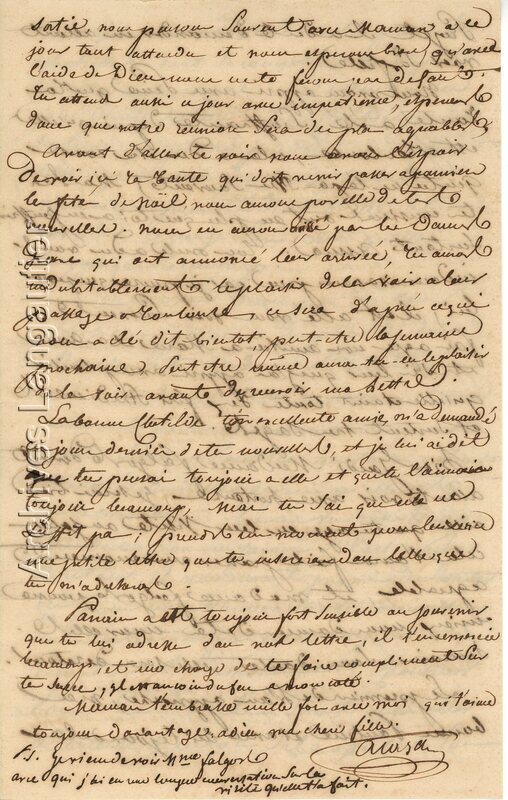 sortie nous pensons Laurent avec Maman à ce
jour tant attendu et nous esperons bien qu'avec
l'aide de Dieu nous ne te ferons pas defaut.
Tu attend aussi ce jour avec impatience, esperons
donc que notre reunion sera des plus agreables.
Avant d'aller te voir nous avons l'espoir
de voir ici ta tante qui doit venir passer a pamiers
les fetes de Noël, nous aurons par elle de tes
nouvelles. nous en aurons aussi par les Dames
qui ont annoncé leur arrivée, tu auras
indubitablement le plaisir de la voir a leur
passage a Toulouse. ce sera d'après ce qui
nous a été dit bientot peut-etre la semaine
prochaine peut etre même auras-tu eu le plaisir
de la voir avant de recevoir ma lettre.
La bonne Clotilde ton excellente amie, m'a demandé
ces jours derniers de tes nouvelles, et je lui ai dit
que tu pensais toujours a elle et que tu l'aimais
toujours beaucoup, mais tu sais que cela ne
suffit pas; prends un moment pour lui ecrire
une petite lettre que tu insereras dans celle que
tu m'adresseras.
Parrain a été toujours fort sensible au souvenir
que tu lui adresse dans ta lettre, il t'en remercie
beaucoup, et me charge de te faire compliment sur
Maman t'embrasse mille fois avec moi qui t'aime
toujours d'avantage, adieu ma chere fille.
P.S. Je viens de voir Mme Falgos
avec qui j'ai eu une longue conversation sur la
visite qu'elle t'a fait.
Archives Langautier